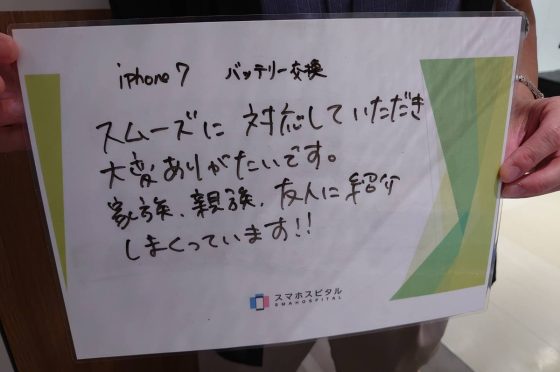 iphone7 バッテリー交換
スムーズに 対応していただき
大変ありがたいです。
家族、親族、友人に紹介
しまくっています!!
スマホスピタル
SMAHOSPITAL